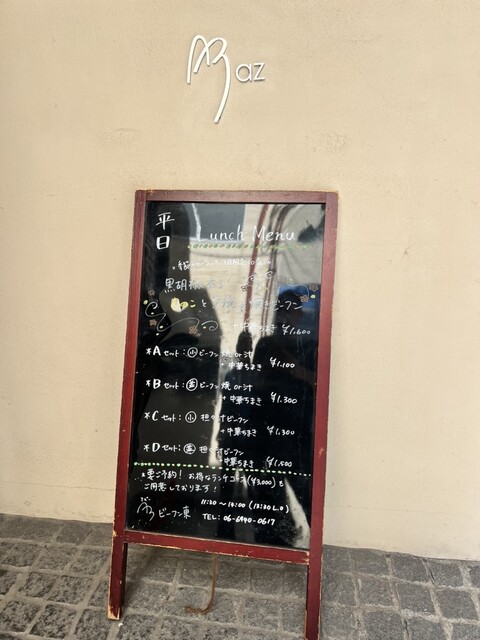 az
平日
Lunch Menu
黒胡椒
+中華ちまき ¥1,600
*Aセット:小ビーフン 焼 or 汁
+中華ちまき ¥1,100
*Bセット: ビーフン 焼 or 汁
+中華ちまき ¥1,300
*Cセット:小 担々汁ビーフン
+中華ちまき ¥1,300
*Dセット: 担々汁ビーフン
+中華ちまき ¥1,500
*要ご予約! お得なランチコース(¥3,000)も
ご用意しております!
ビーフン東 11:30~14:00(13:30 L.O)
TEL: 06-6940-0617